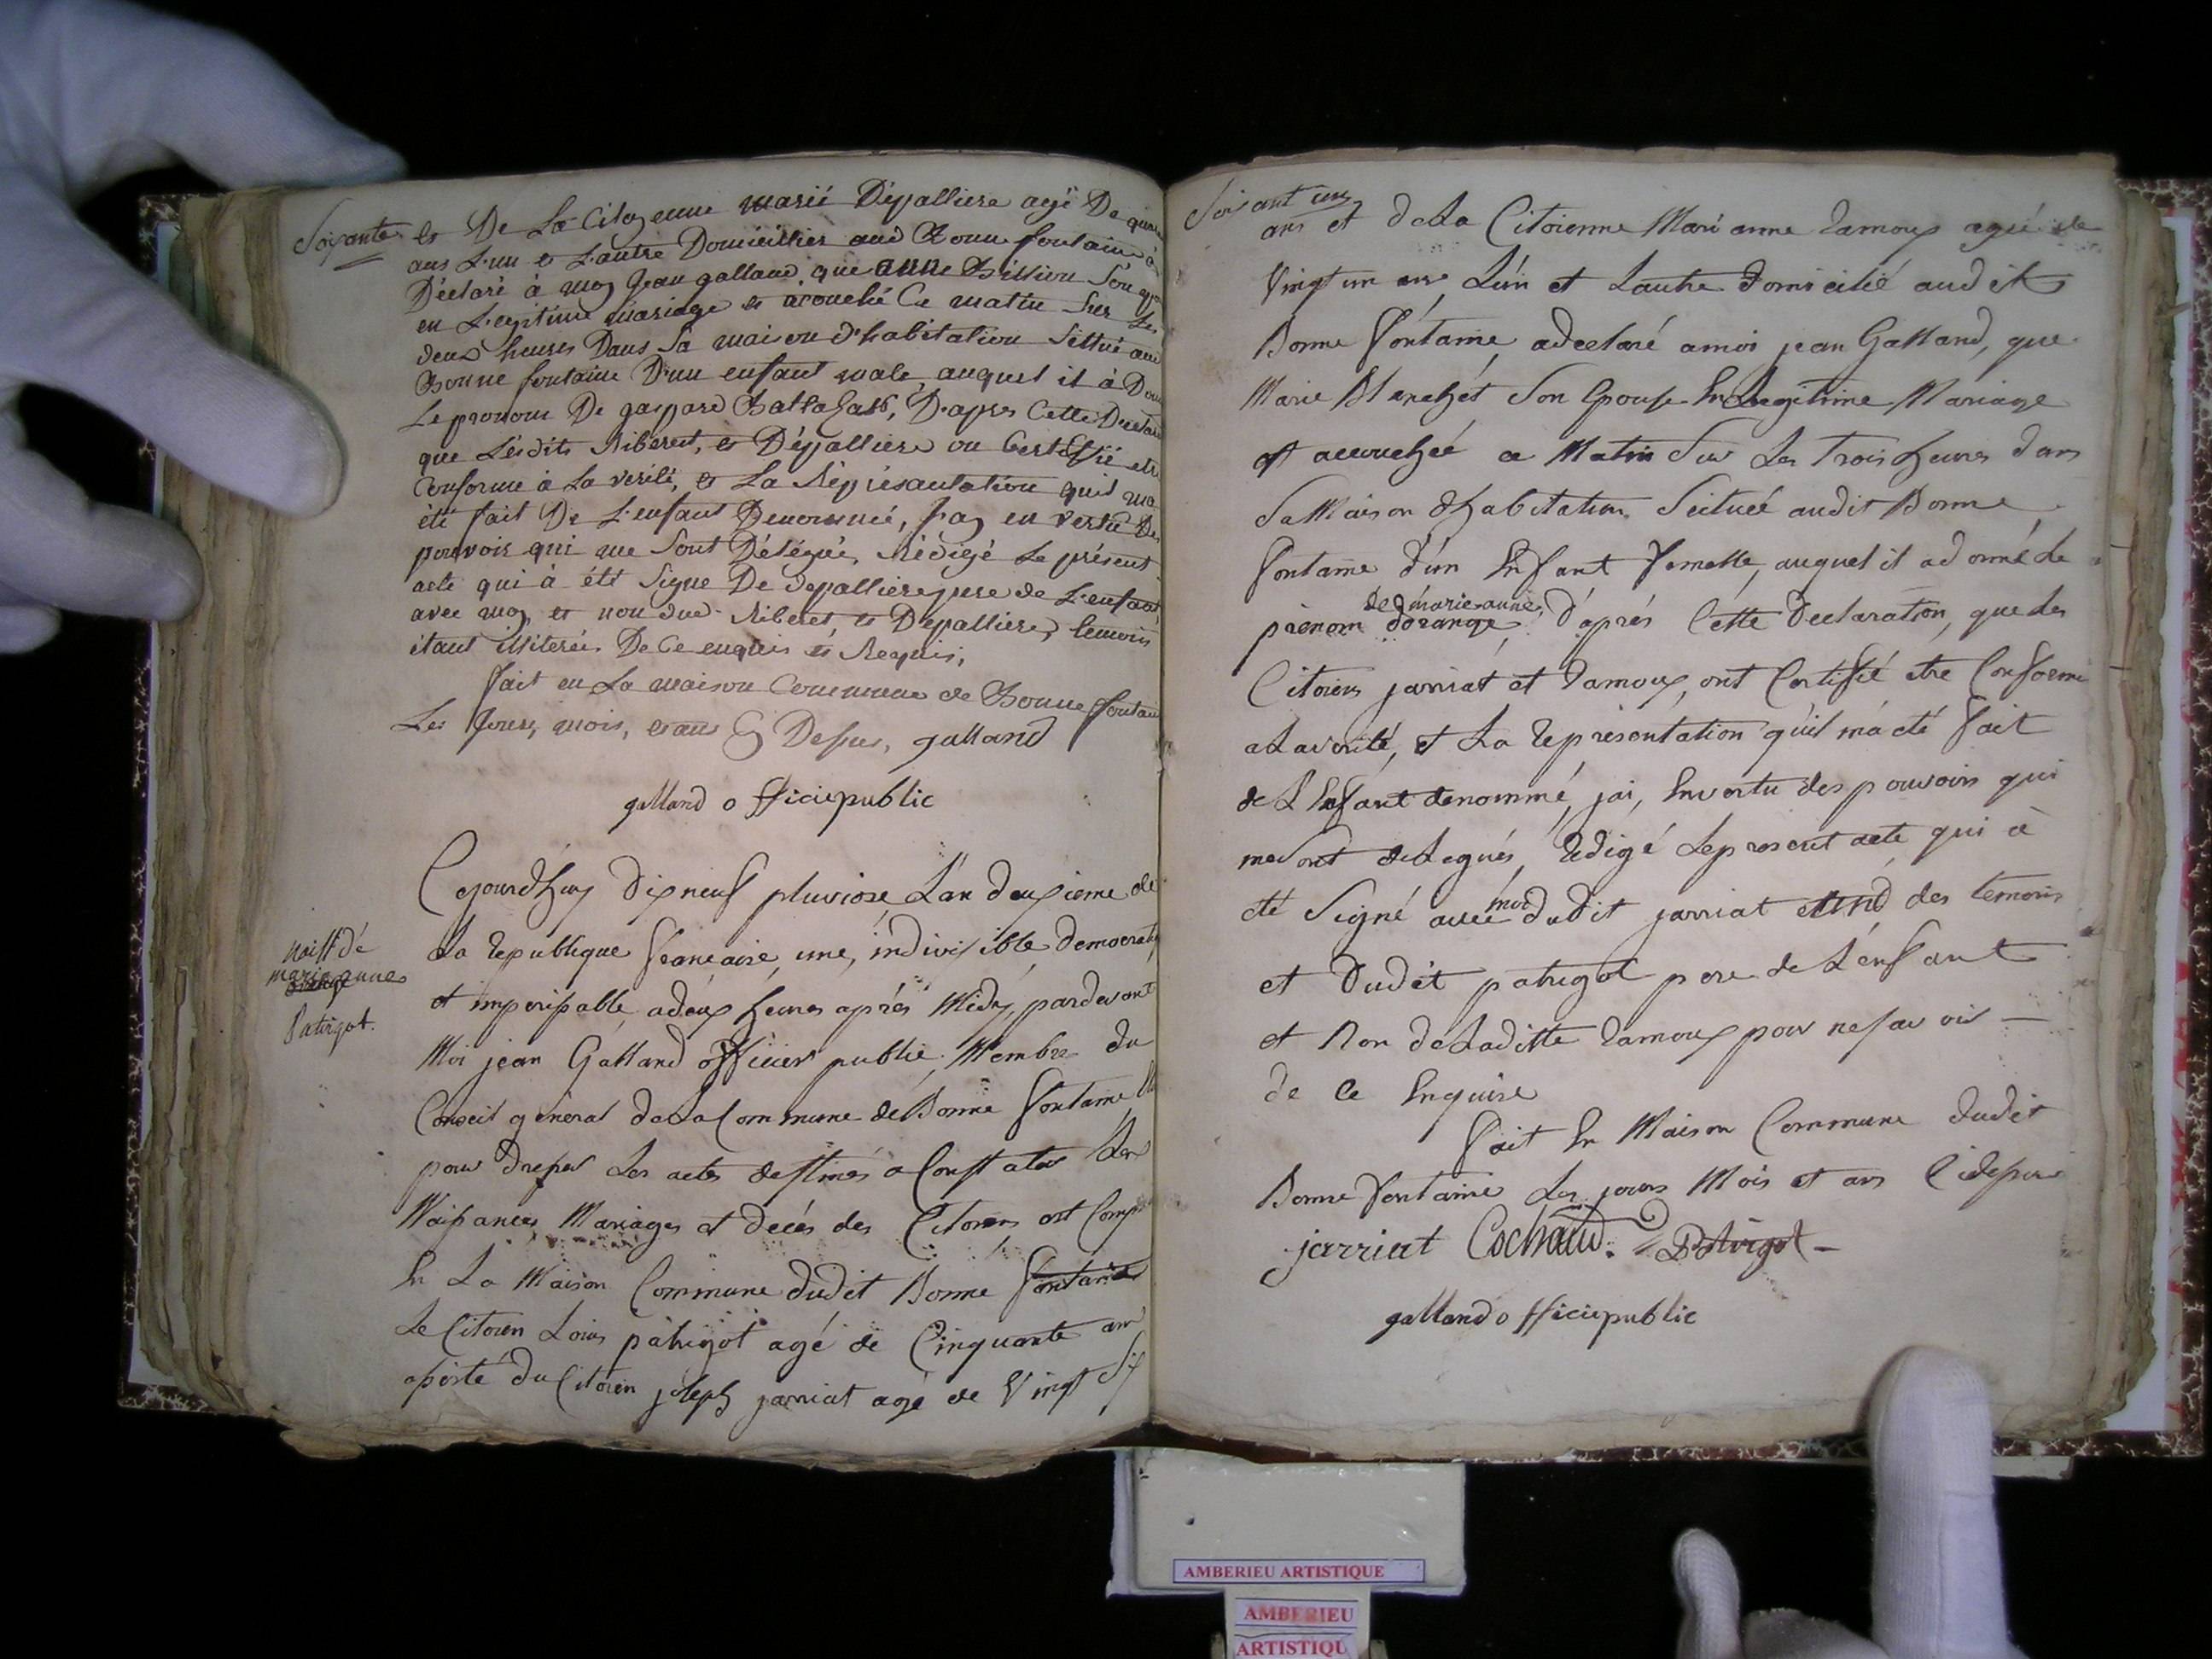 Soixante
et De La Citoyenne marié Dépalliere agé De
ans L'un et L'autre Domicillier aud Bonne fontaine à
Déclaré à moy Jean galland que anne Son
en Legitime mariage et acouché Ce matin sur Les
deux heures Dans Sa maison d'habitation Sittué aud
Bonne fontaine D'un enfant male, auquel il à
Le pronom De gaspard D'apres Cette
que Lesdits Riberet, et Dépalliere on Certiffié etre
Conforme à La vérité, et La Réprésantation quil ma
été fait De L'enfant Denommé, Jay en vertu Des
pouvoir qui me Sont Délégués, Rédigé Le présent
acte qui à été Signé De Depalliere pere de L'enfant
avec moy et non dud. Riberet et Depalliere, temoins
étant illiterés De Ce enquis et Requis,
fait en La maison Commune de Bonne fontaine
Les Jours, mois, et ans Cy Dessus, galland
galland o fficiepublic
naiss de
marie anne
Patrigot.
Cejourdhuy Dixneuf pluviose L'an deuxieme de
La republique francaise, une, indivisible democratiq
et imperissable, adeux heures aprés Midy, pardevant
Moi jean Galland officier public, Membre du
Conseil géneral de La Commune de Bonne fontaine
pour dresser Les actes destinés a Constater Les
Naissances, Mariages et decés des Citoiens, est
En La Maison Commune dudit Bonne fontaine
Le Citoien Louis patrigot agé de Cinquante ans
assisté du Citoien joseph jarriat agé de Vingt Six
Soixant un
ans et de La Citoienne Marianne ramoux agée de
Vingt un ans L'un et Lautre domicilié audit
Bonne fontaine, adeclaré amoi jean Galland, que
Marie Blanchet Son Epouse En Legitime Mariage
est accouchée ce Matin Sur Les Trois heures dans
Sa Maison d'habitation Scituée audit Bonne
fontaine d'un Enfant femelle, auquel il adonné le
de marie anne
prenom dorange, d'aprés Cette declaration, que les
Citoiens jarriat et ramoux, ont Certifié etre Conforme
a La verité, et La représentation qu'il m'a été fait
de L'Enfant denommé, jai, En vertu des pouvoirs qui
me Sont delegués, rédigé Le present acte, qui à
moi
été Signé avec dudit jarriat des temoins
et dudit patrigot pere de L'enfant
et Non de Laditte ramoux pour ne savoir —
de Ce Enquise
fait En Maison Commune dudit
Bonne fontaine Les jours Mois et ans Cidessus
jarriat Cochaud. Patrigot —
galland o fficiepublic
AMBERIEU ARTISTIQUE
AMBERIEU
ARTISTIQU